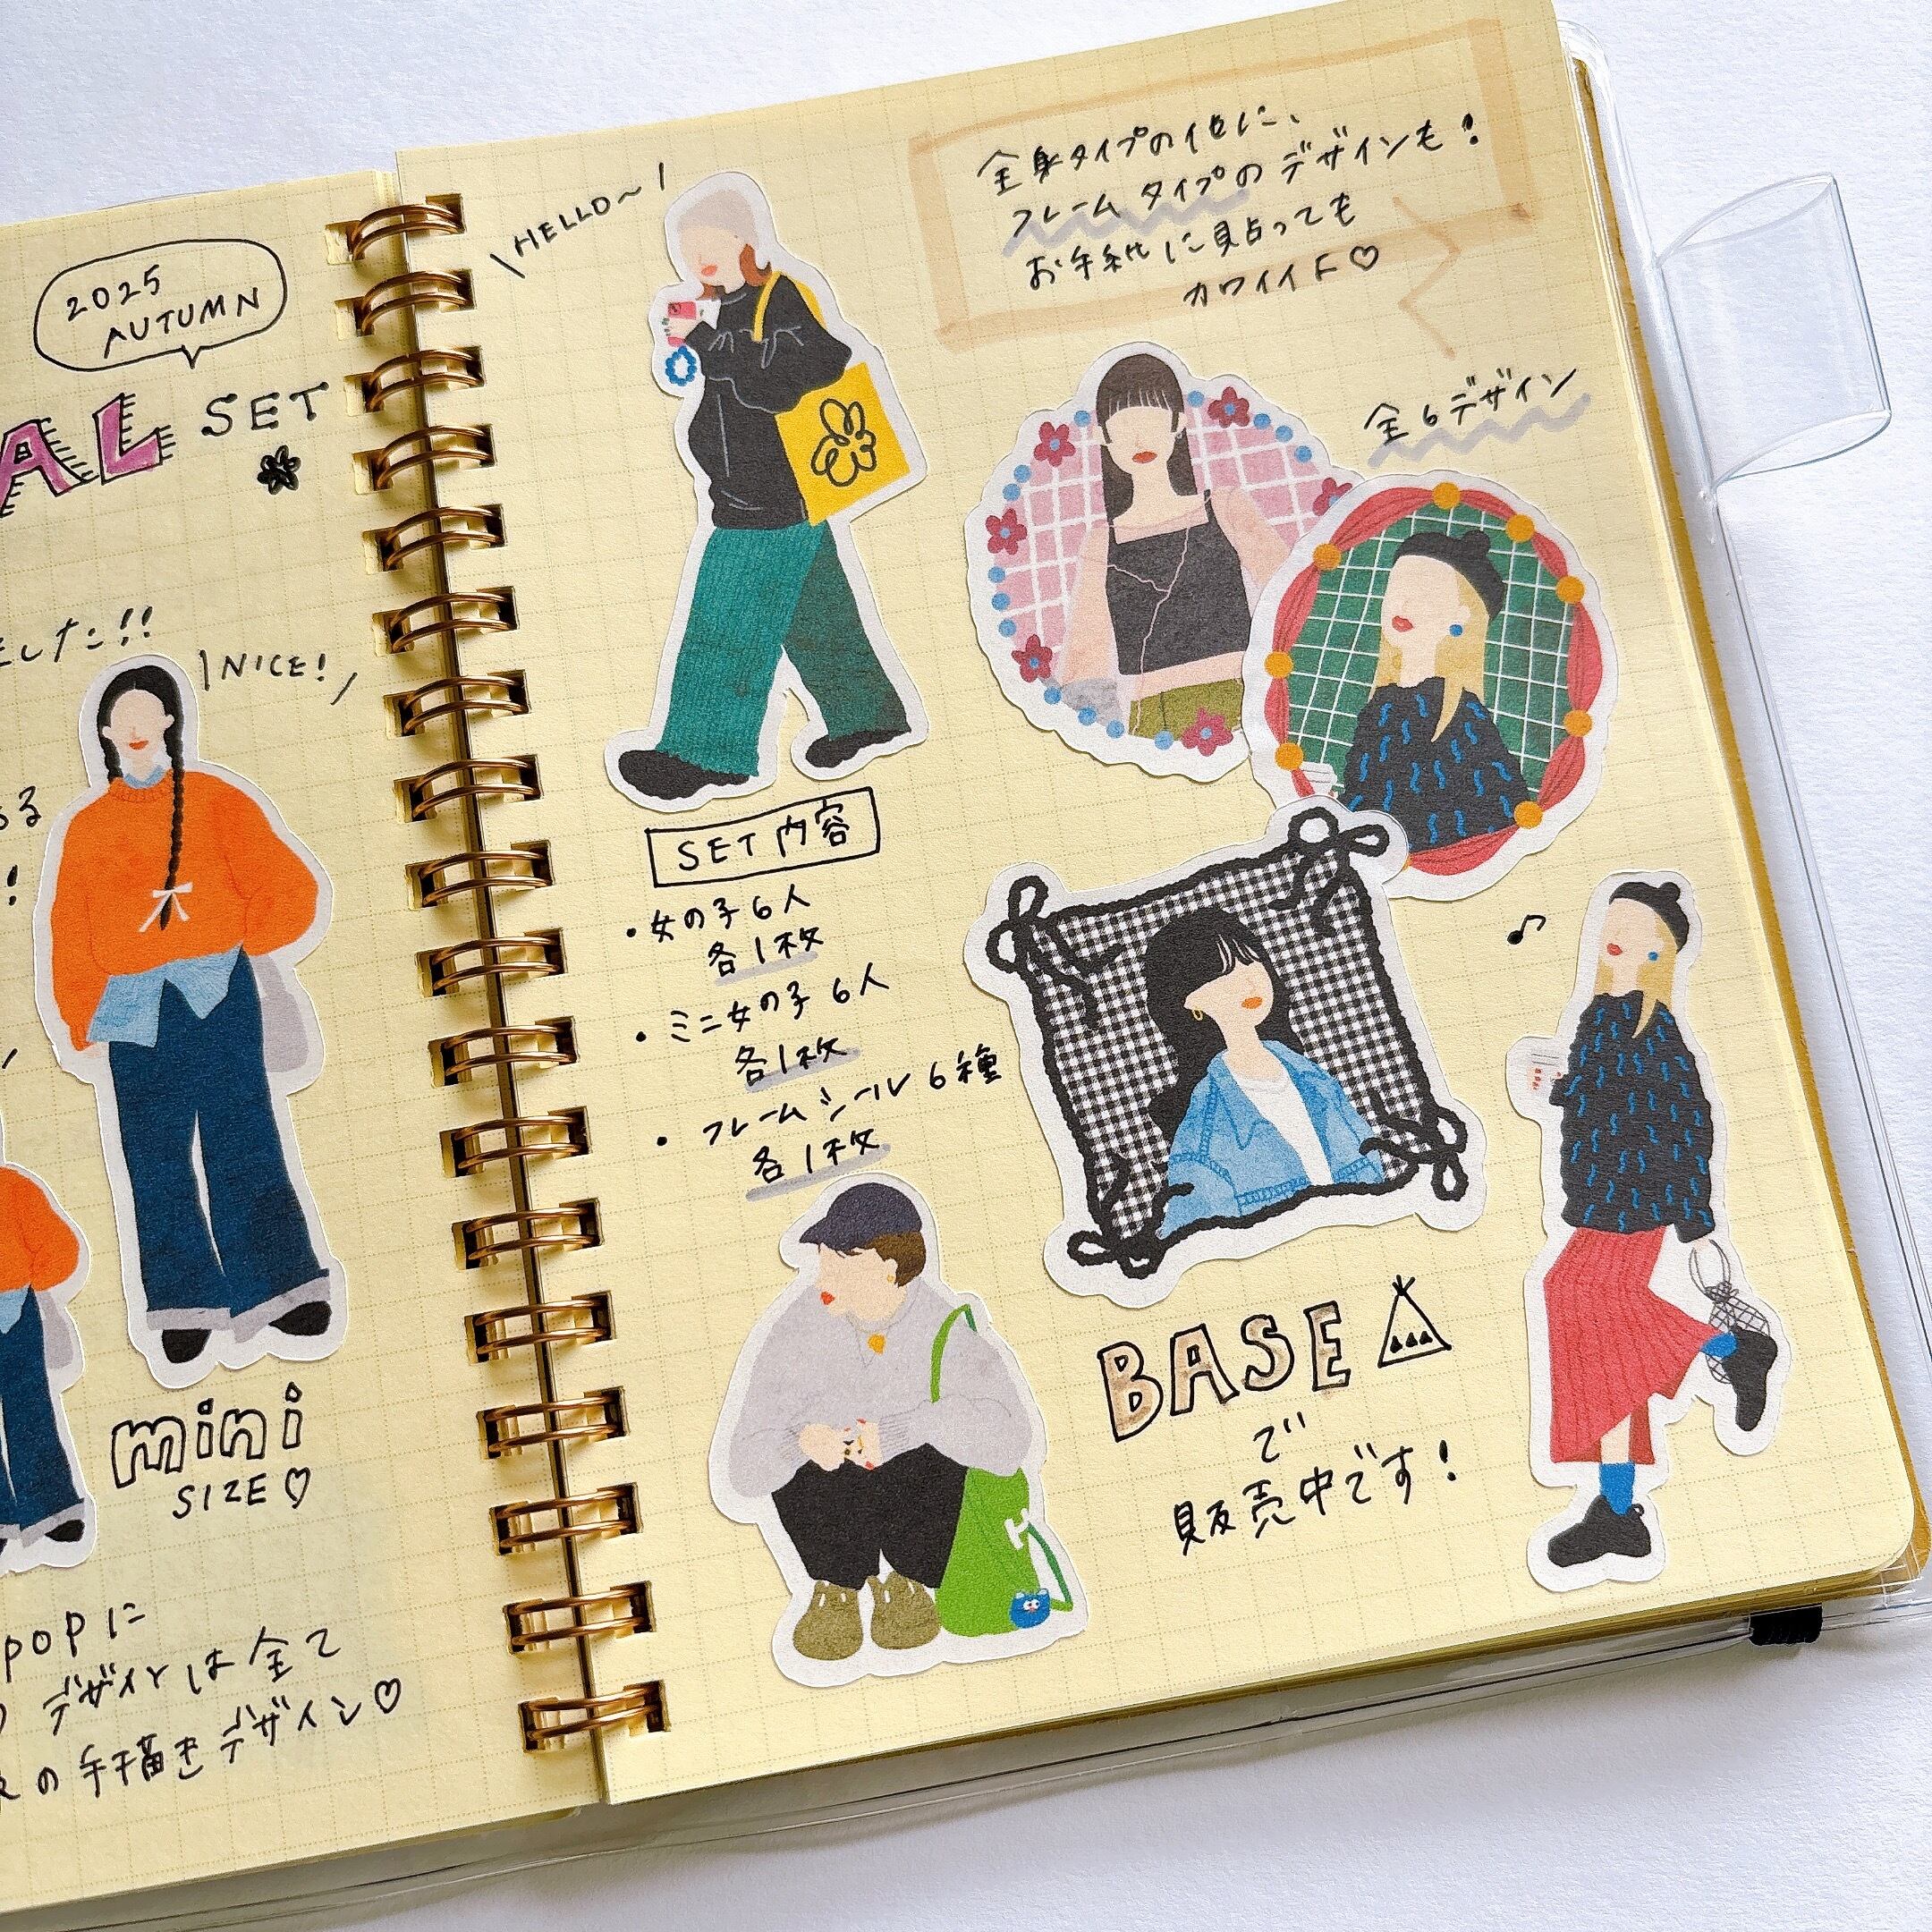 2025
AUTUMN
AL SET
ました!!
NICE!
る
!
mini
SIZE♡
popに
デザインは全て
の手描きデザイン♡
\HELLO~/
全身タイプの他に、
フレームタイプのデザインも!
お手紙に貼っても
カワイイド♡
全6デザイン
SET内容
・女の子6人
各1枚
・ミニ女の子6人
各1枚
・フレームシール6種
各1枚
♪
BASE
で
販売中です!